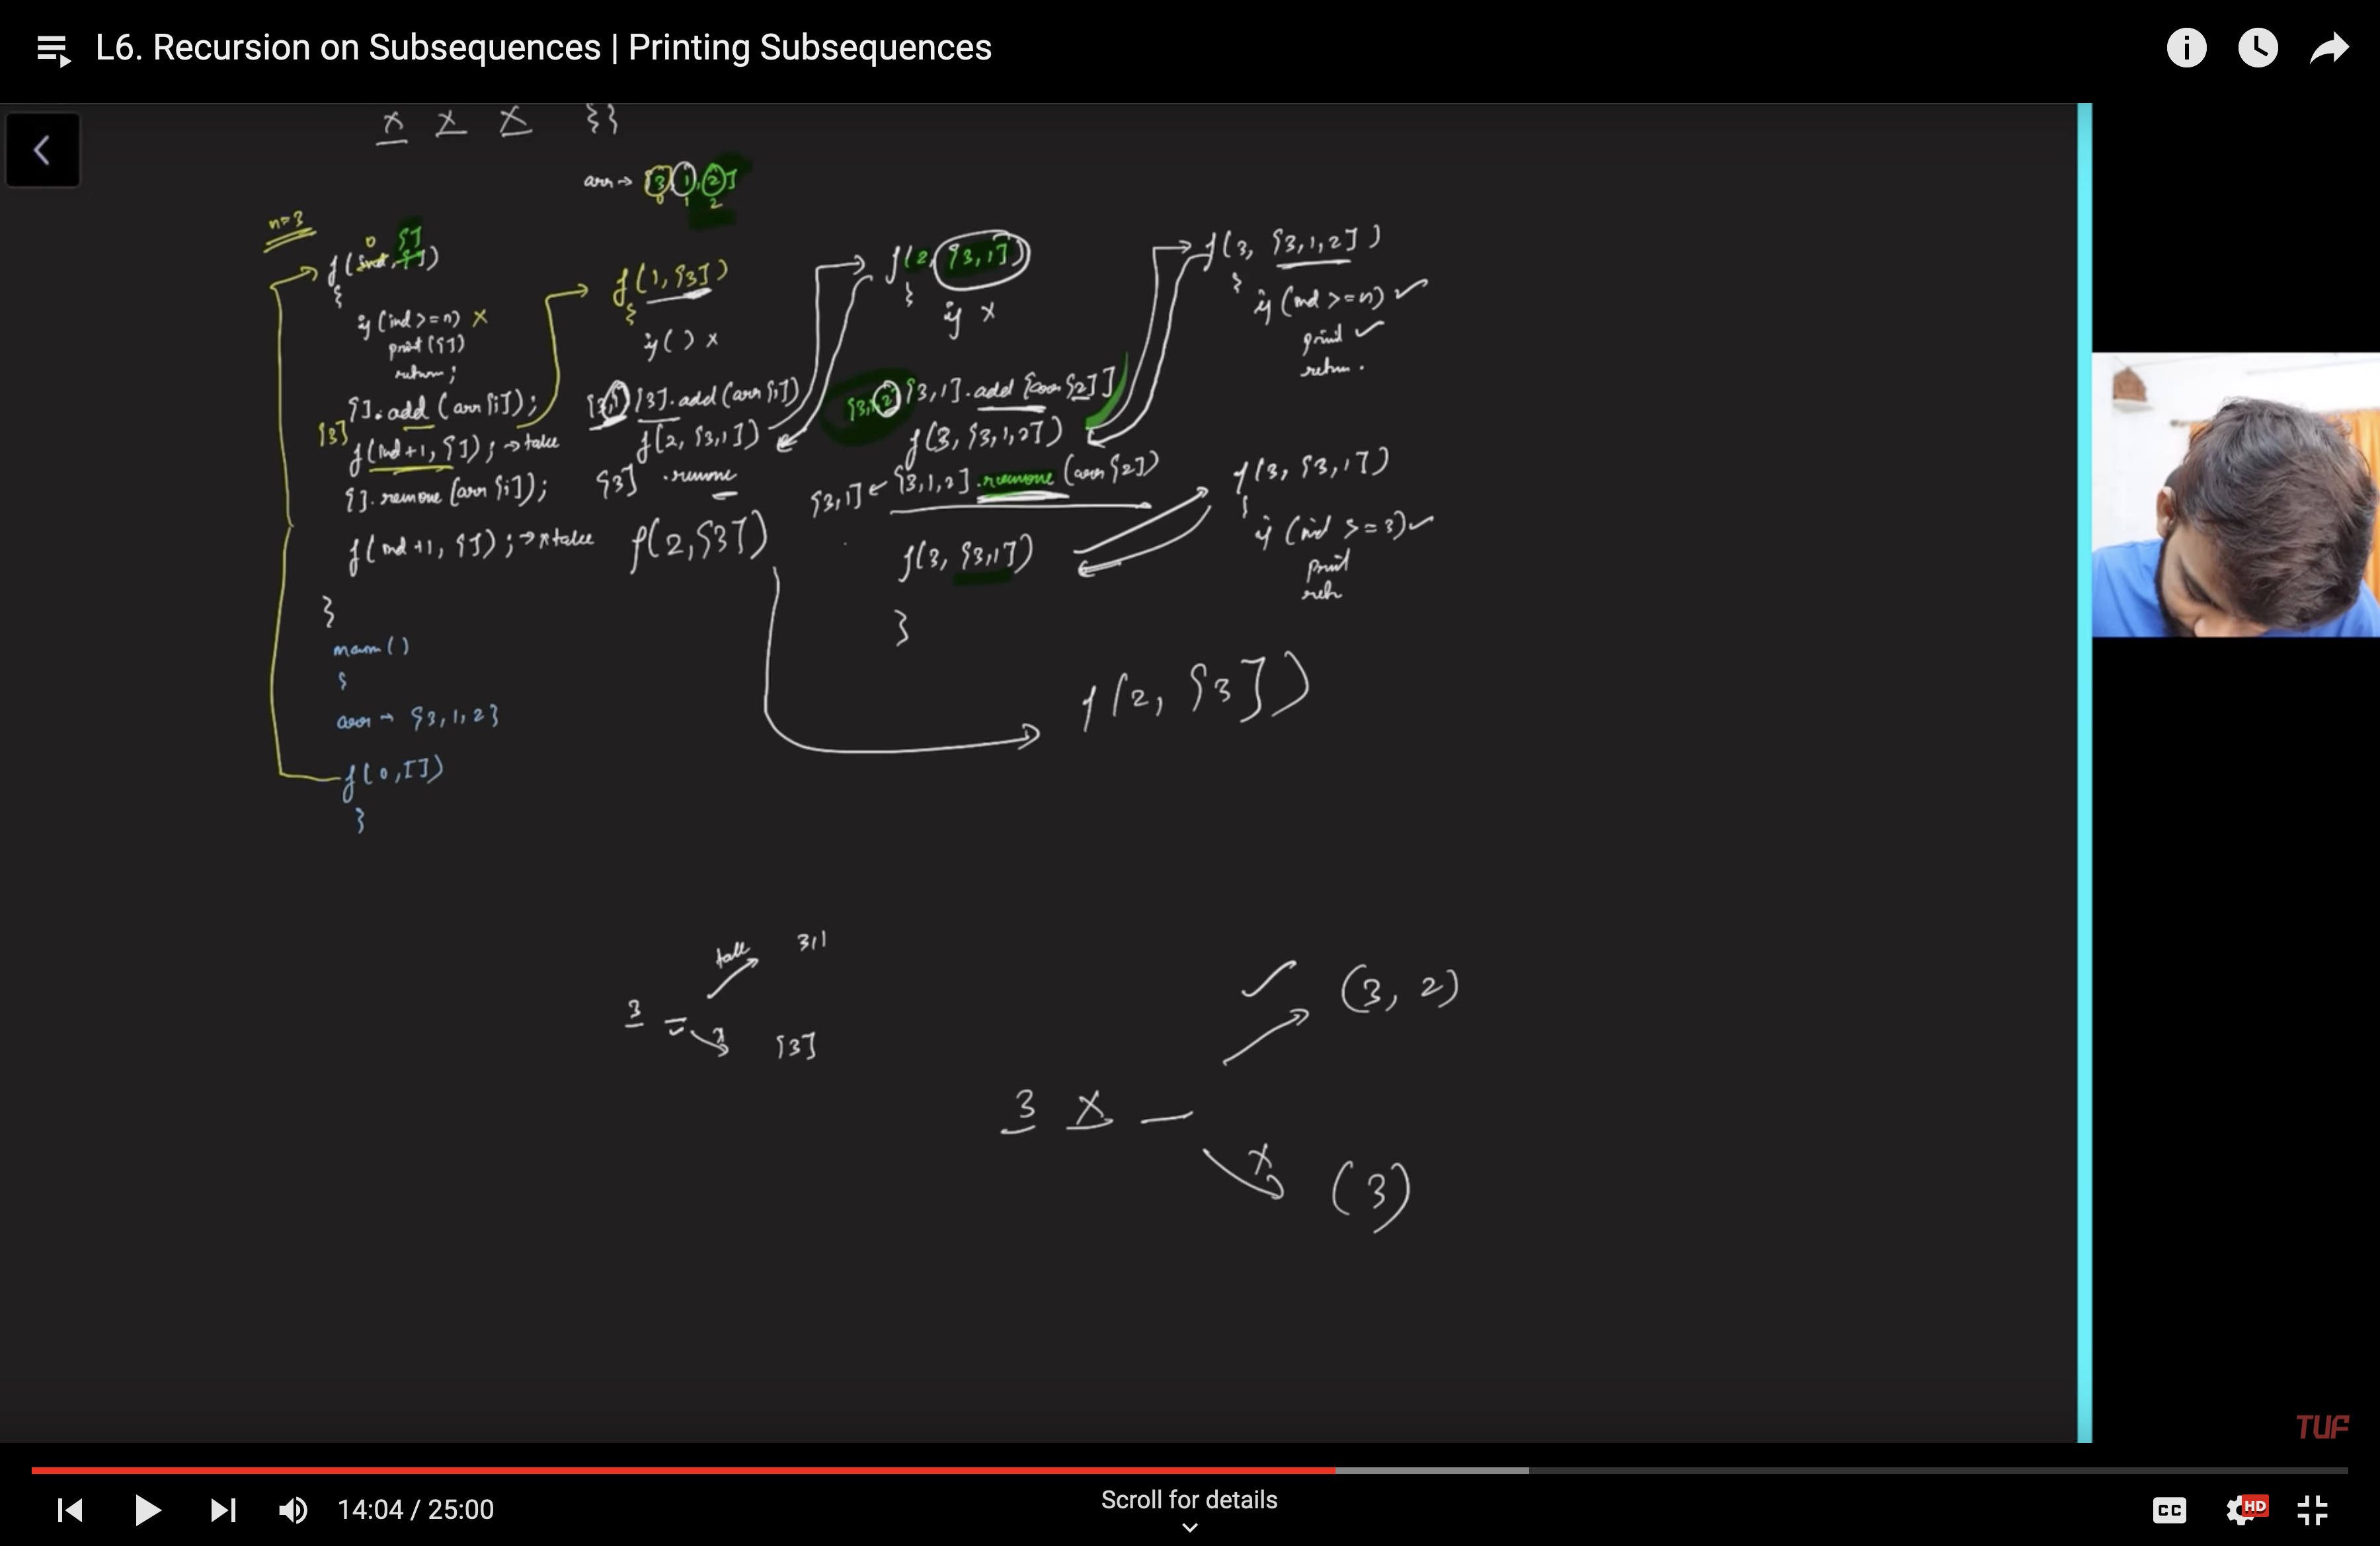 L6. Recursion on Subsequences | Printing Subsequences
x x x }}
arr → [3,1,2]
0 1 2
n=3
0 []
f(ind, [])
{
if (ind >= n) x
print([])
return;
[].add(arr[i]);
[3]
f(ind+1, []); → take
[].remove(arr[i]);
f(ind+1, []); → x take
}
main()
{
arr → {3,1,2}
f(0,[])
}
f(1,[3])
{
if() x
[3,1] [3].add(arr[i])
f(2, [3,1])
[3] .remove
f(2,[3])
f(2, [3,1])
{
if x
[3,1,2] [3,1].add[arr[2]]
f(3, [3,1,2])
[3,1] ← [3,1,2].remove(arr[2])
f(3, [3,1])
}
f(3, [3,1,2])
{
if (ind >= n) ✓
print ✓
return.
f(3, [3,1])
{
if (ind >= 3) ✓
print
f(2, [3])
3,1
3
x
[3]
✓ (3, 2)
3 x
x
(3)
TUF
14:04 / 25:00
Scroll for details
CC
HD